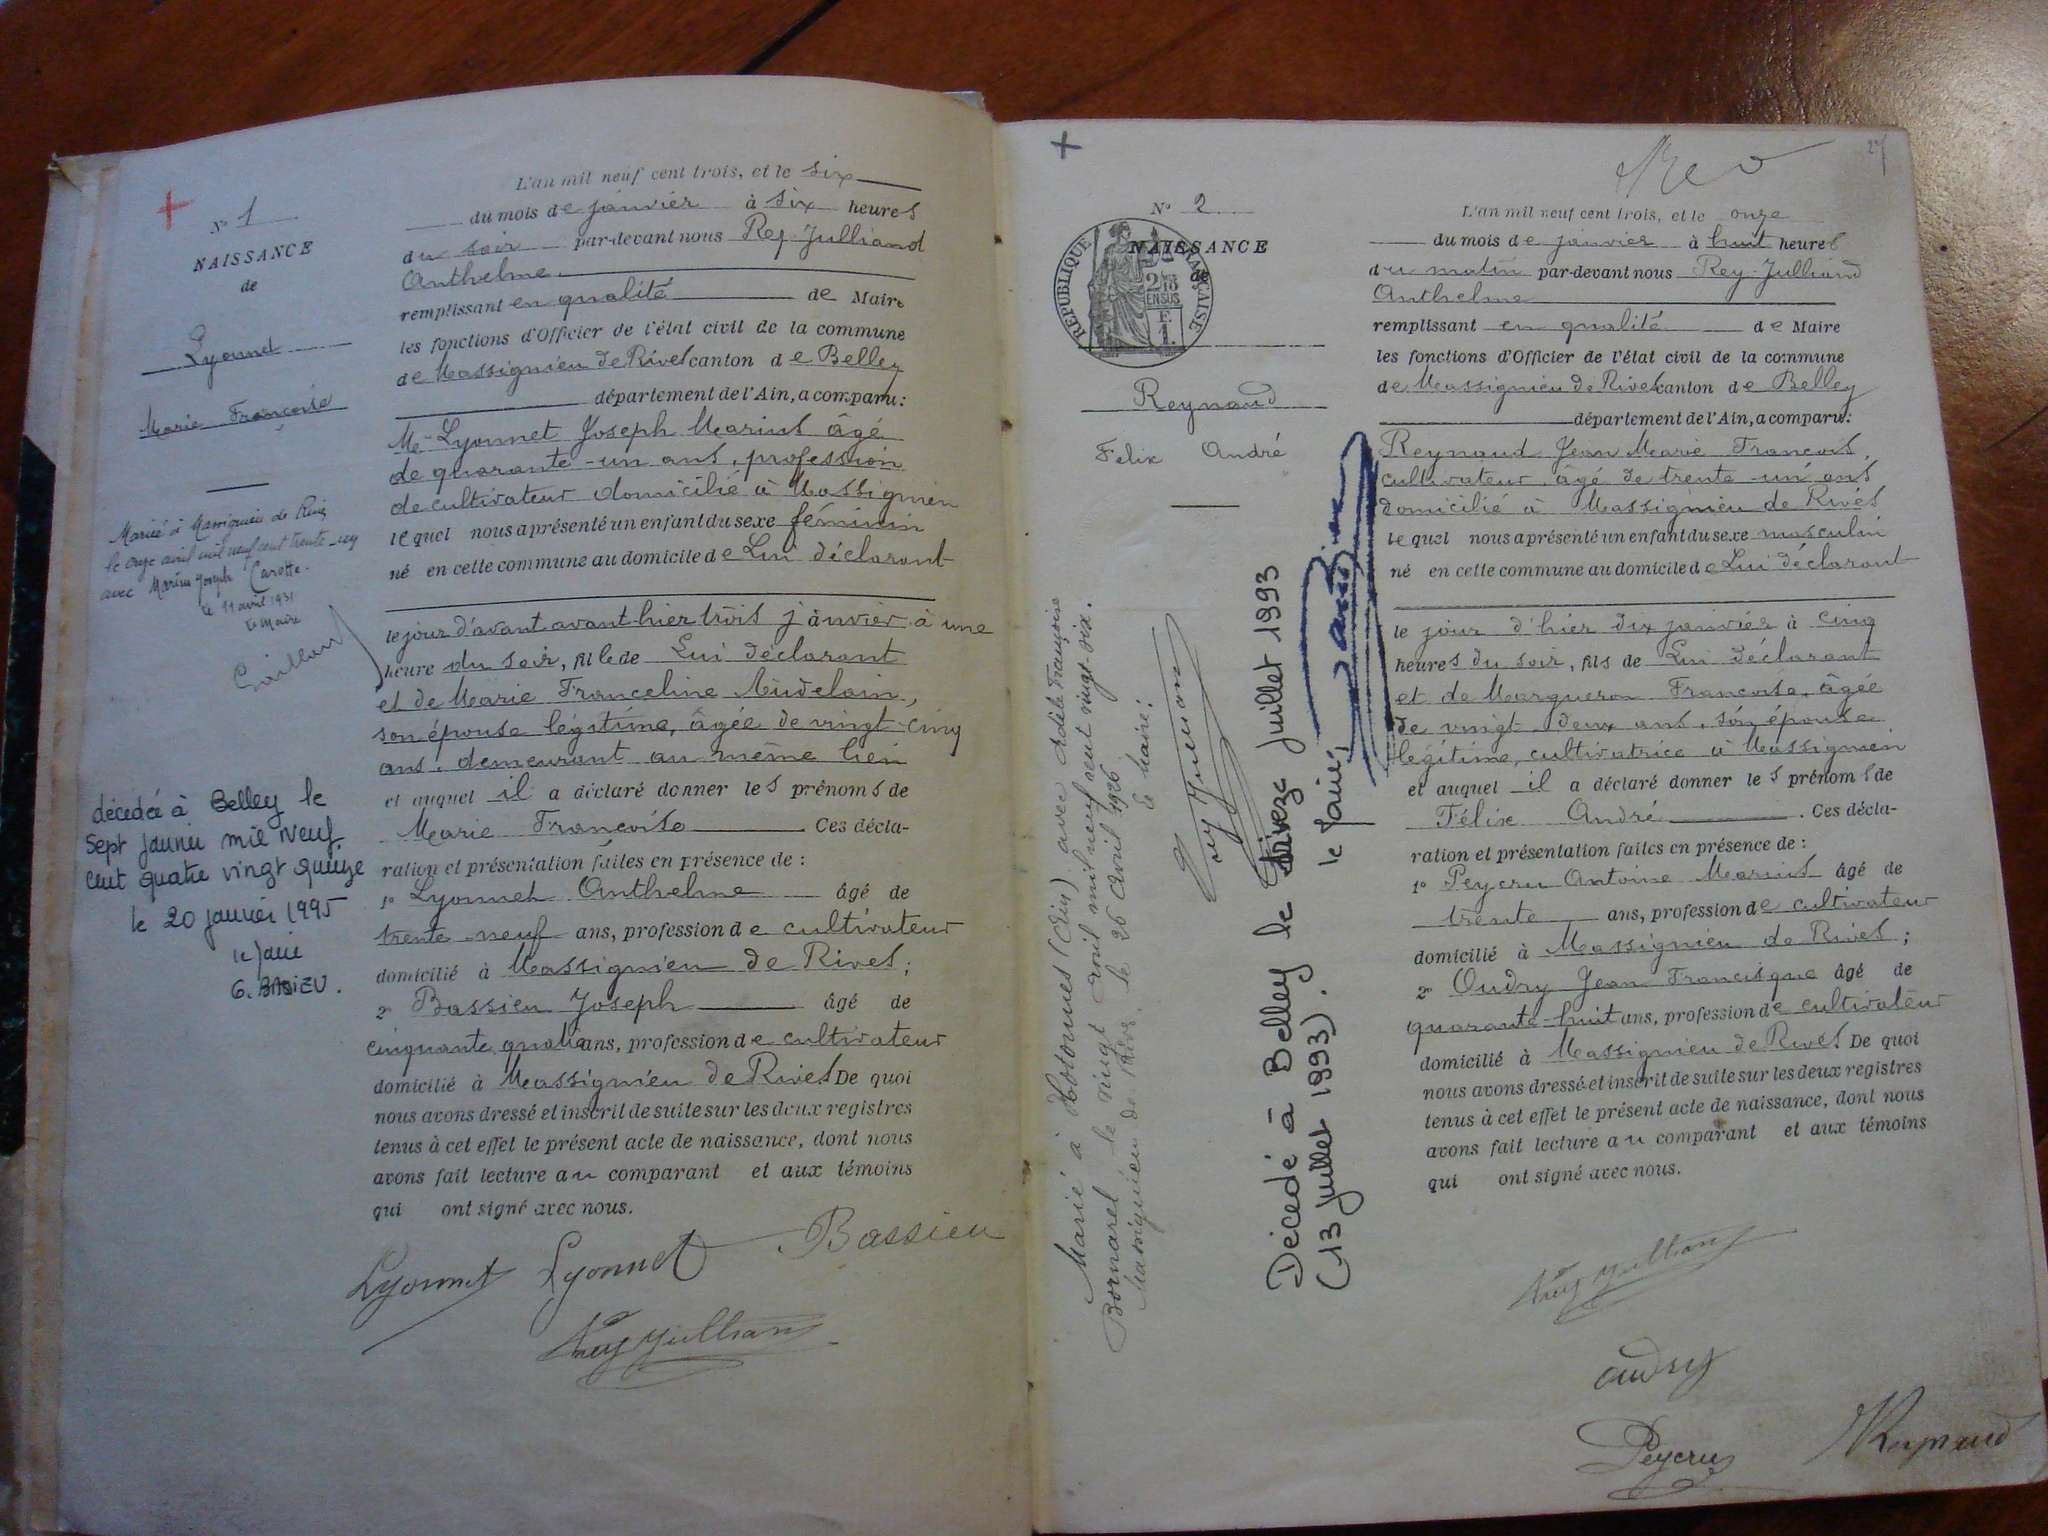 N° 1
NAISSANCE
de
Lyonnet
Marie Françoise
Mariée à Massignieu de Rives
le onze avril mil neuf cent trente-un
avec Marius Joseph Carotte.
le 11 avril 1931
Le Maire
décédée à Belley le
Sept janvier mil neuf
cent quatre vingt quinze
le 20 janvier 1995
le Maire
L'an mil neuf cent trois, et le six
du mois de janvier à six heures
du soir par-devant nous Rey-Julliand
Anthelme
remplissant en qualité de Maire
les fonctions d'Officier de l'état civil de la commune
de Massignieu de Rives canton de Belley
département de l'Ain, a comparu:
Mr Lyonnet Joseph Marius âgé
de quarante-un ans, profession
de cultivateur domicilié à Massignieu
lequel nous a présenté un enfant du sexe féminin
né en cette commune au domicile de Lui déclarant
le jour d'avant avant-hier trois janvier à une
heure du soir, fille de Lui déclarant
et de Marie Franceline
son épouse légitime, âgée de vingt-cinq
ans, demeurant au même lieu
et auquel il a déclaré donner les prénoms de
Marie Françoise Ces décla-
ration et présentation faites en présence de :
1° Lyonnet Anthelme âgé de
trente-neuf ans, profession de cultivateur
domicilié à Massignieu de Rives;
2° Bassieu Joseph âgé de
cinquante quatre ans, profession de cultivateur
domicilié à Massignieu de Rives De quoi
nous avons dressé et inscrit de suite sur les deux registres
tenus à cet effet le présent acte de naissance, dont nous
avons fait lecture au comparant et aux témoins
qui ont signé avec nous.
Lyonnet Lyonnet Bassieu
Rey Jullian
N° 2
NAISSANCE
de
REPUBLIQUE FRANÇAISE
Reynaud
Felix André
Marié à Hotonnes (Ain) avec Adèle Françoise
Bornarel le vingt avril mil neuf cent vingt-six.
Massignieu de Rives. le 26 Avril 1926
Le Maire:
Décédé à Belley le treize juillet 1993
(13 juillet 1993). le Maire,
L'an mil neuf cent trois, et le onze
du mois de janvier à huit heures
du matin par-devant nous Rey-Julliand
Anthelme
remplissant en qualité de Maire
les fonctions d'Officier de l'état civil de la commune
de Massignieu de Rives canton de Belley
département de l'Ain, a comparu:
Reynaud Jean Marie François,
cultivateur âgé de trente-un ans
domicilié à Massignieu de Rives
lequel nous a présenté un enfant du sexe masculin
né en cette commune au domicile de Lui déclarant
le jour d'hier dix janvier à cinq
heures du soir, fils de Lui déclarant
et de Margueron Françoise, âgée
de vingt-deux ans, son épouse
légitime, cultivatrice à Massignieu
et auquel il a déclaré donner les prénoms de
Félix André. Ces décla-
ration et présentation faites en présence de :
1° Peycru Antoine Marius âgé de
trente ans, profession de cultivateur
domicilié à Massignieu de Rives;
2° Oudry Jean Francisque âgé de
quarante-huit ans, profession de cultivateur
domicilié à Massignieu de Rives De quoi
nous avons dressé et inscrit de suite sur les deux registres
tenus à cet effet le présent acte de naissance, dont nous
avons fait lecture au comparant et aux témoins
qui ont signé avec nous.
Rey Jullian
oudry
Peycru Reynaud